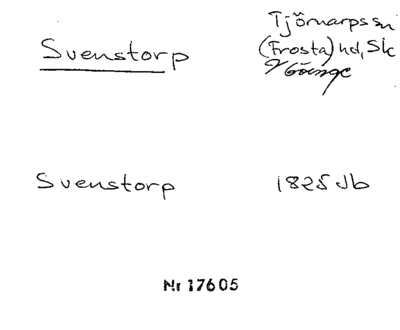 Svenstorp
Tjörnarps sn
(Frosta) hd, Sk
V Göinge
Svenstorp
1825 Jb
Nr 17605